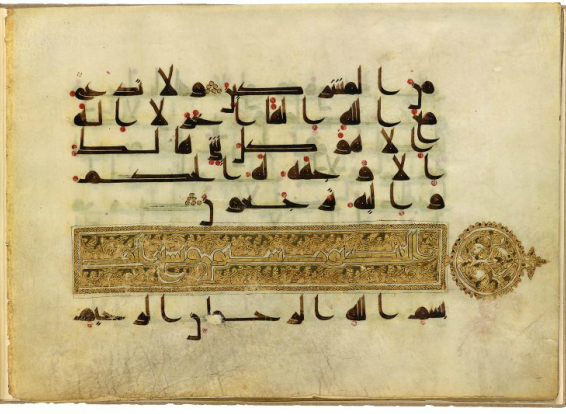 من المشركين ولا تدع
مع الله الها اخر لا اله
الا هو كل شى هالك
الا وجهه له الحكم
واليه ترجعون
بسم الله الرحمن الرحيم